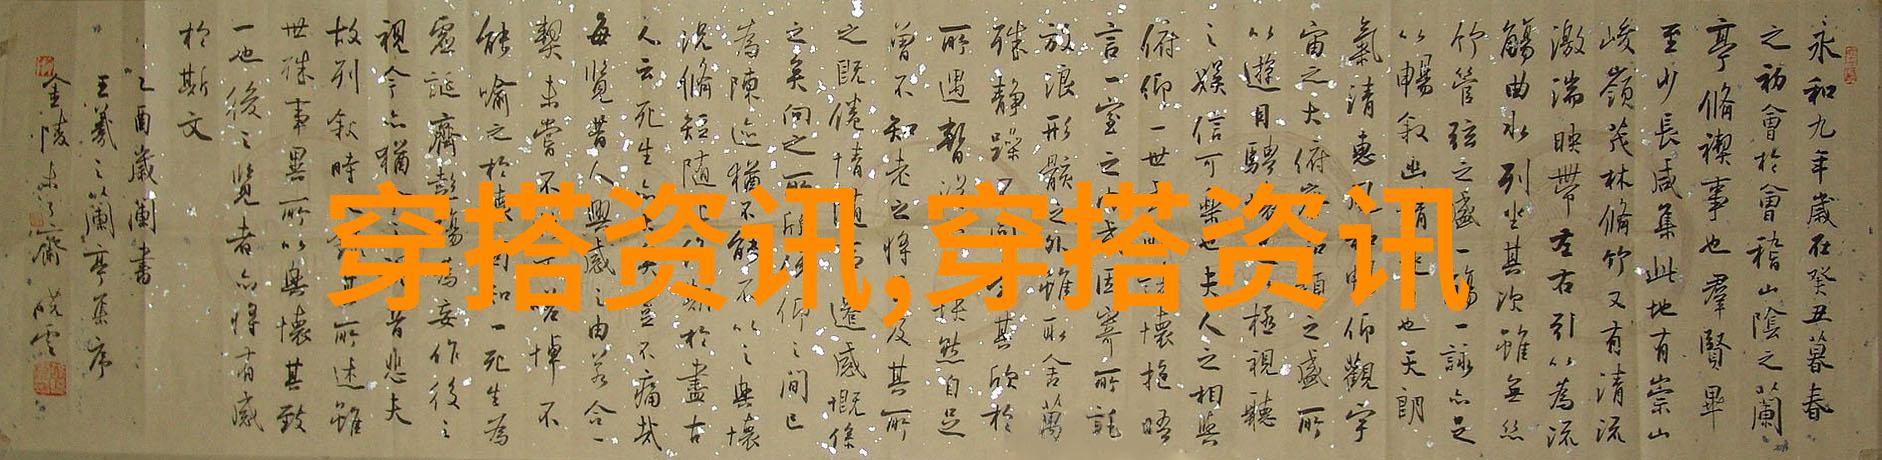 永和九年歲在癸丑暮春
之初會於會稽山陰之蘭
亭脩禊事也羣賢畢
至少長咸集此地有崇山
峻嶺茂林脩竹又有清流
激湍映帶左右引以為流
觴曲水列坐其次雖無絲
竹管弦之盛一觴一詠亦足
以暢敘幽情是也天朗
氣清惠風和暢仰觀宇
宙之大俯察品類之盛所
以遊目騁懷極視聽
之娛信可樂也夫人之相與
俯仰一世懷抱晤
言一室之內或因寄所託
放浪形骸之外雖取舍萬
殊靜躁不同其欣於
所遇暫得快然自足
曾不知老之將及其所
之既倦情隨遷感慨係
之矣向之所欣仰之間已
為陳迹猶不能不以之興懷
況脩短隨化終於盡古
人云死生亦大矣豈不痛哉
每覽昔人興感之由若合一
契未嘗不悼不
能喻之於懷固知一死生為
虛誕齊彭殤為妄作後之
視今亦猶昔悲夫
故列敘時人其所述雖
世殊事異所以興懷其致
一也後之覽者亦將有感
於斯文
乙酉歲蘭書
王羲之蘭亭集序
金陵齋
穿搭资讯,穿搭资讯